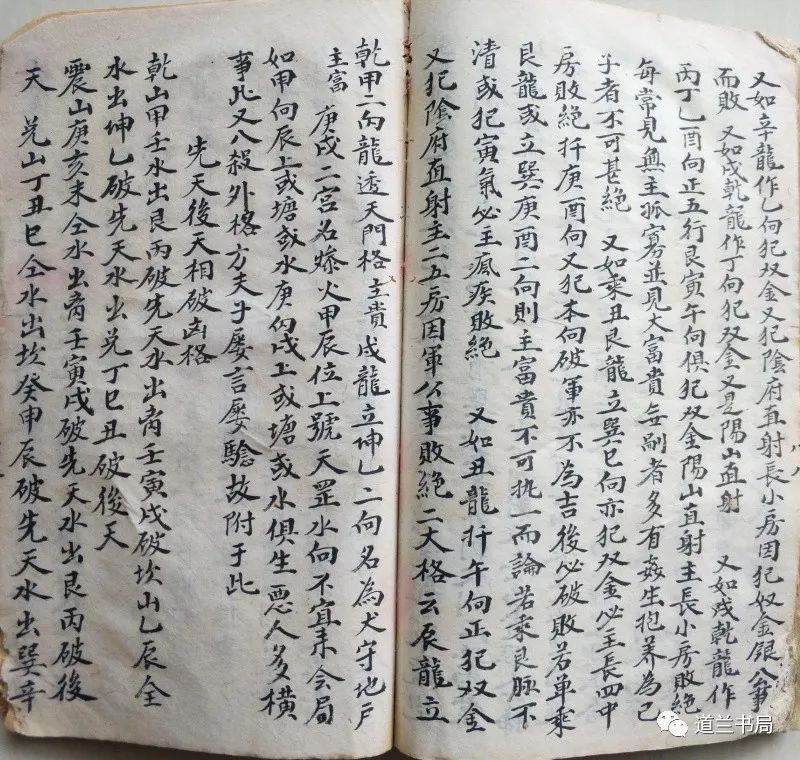 又如辛龍作乙向犯双金又犯陰府直射長小房因犯奴金銀公事
而敗　又如戌乾龍作丁向犯双金又是陽山直射　又如戌乾龍作
丙丁乙酉向正五行艮寅午向俱犯双金陽山直射主長小房敗絶
每常見無主孤寡並見大富貴無嗣者多有姦生抱養為己
子者不可甚絶　又如乘丑艮龍立巽巳向亦犯双金必主長四中
房敗絶扦庚酉向又犯本向破軍亦不為吉後必破敗若單乘
艮龍或立巽庚酉二向則主富貴不可執一而論若乘艮脉不
清或犯寅氣必主瘋疾敗絶　又如丑龍扦午向正犯双金
又犯陰府直射主二五房因軍公事敗絶二大格云辰龍立
乾甲二向龍透天門格主貴戌龍立坤乙二向名為犬守地戶
主富　庚戌二宮名燥火甲辰位上號天罡水向不宜來会局
如甲向辰上或塘或水庚向戌上或塘或水俱生惡人多橫
事此又八殺外格方夫子屡言屡驗故附于此
先天後天相破凶格
乾山甲壬水出艮丙破先天水出离壬寅戌破坎山乙辰全
水出坤乙破先天水出兑丁巳丑破後天
震山庚亥未仝水出离壬寅戌破先天水出艮丙破後
天　兑山丁丑巳仝水出坎癸申辰破先天水出巽辛
道兰书局